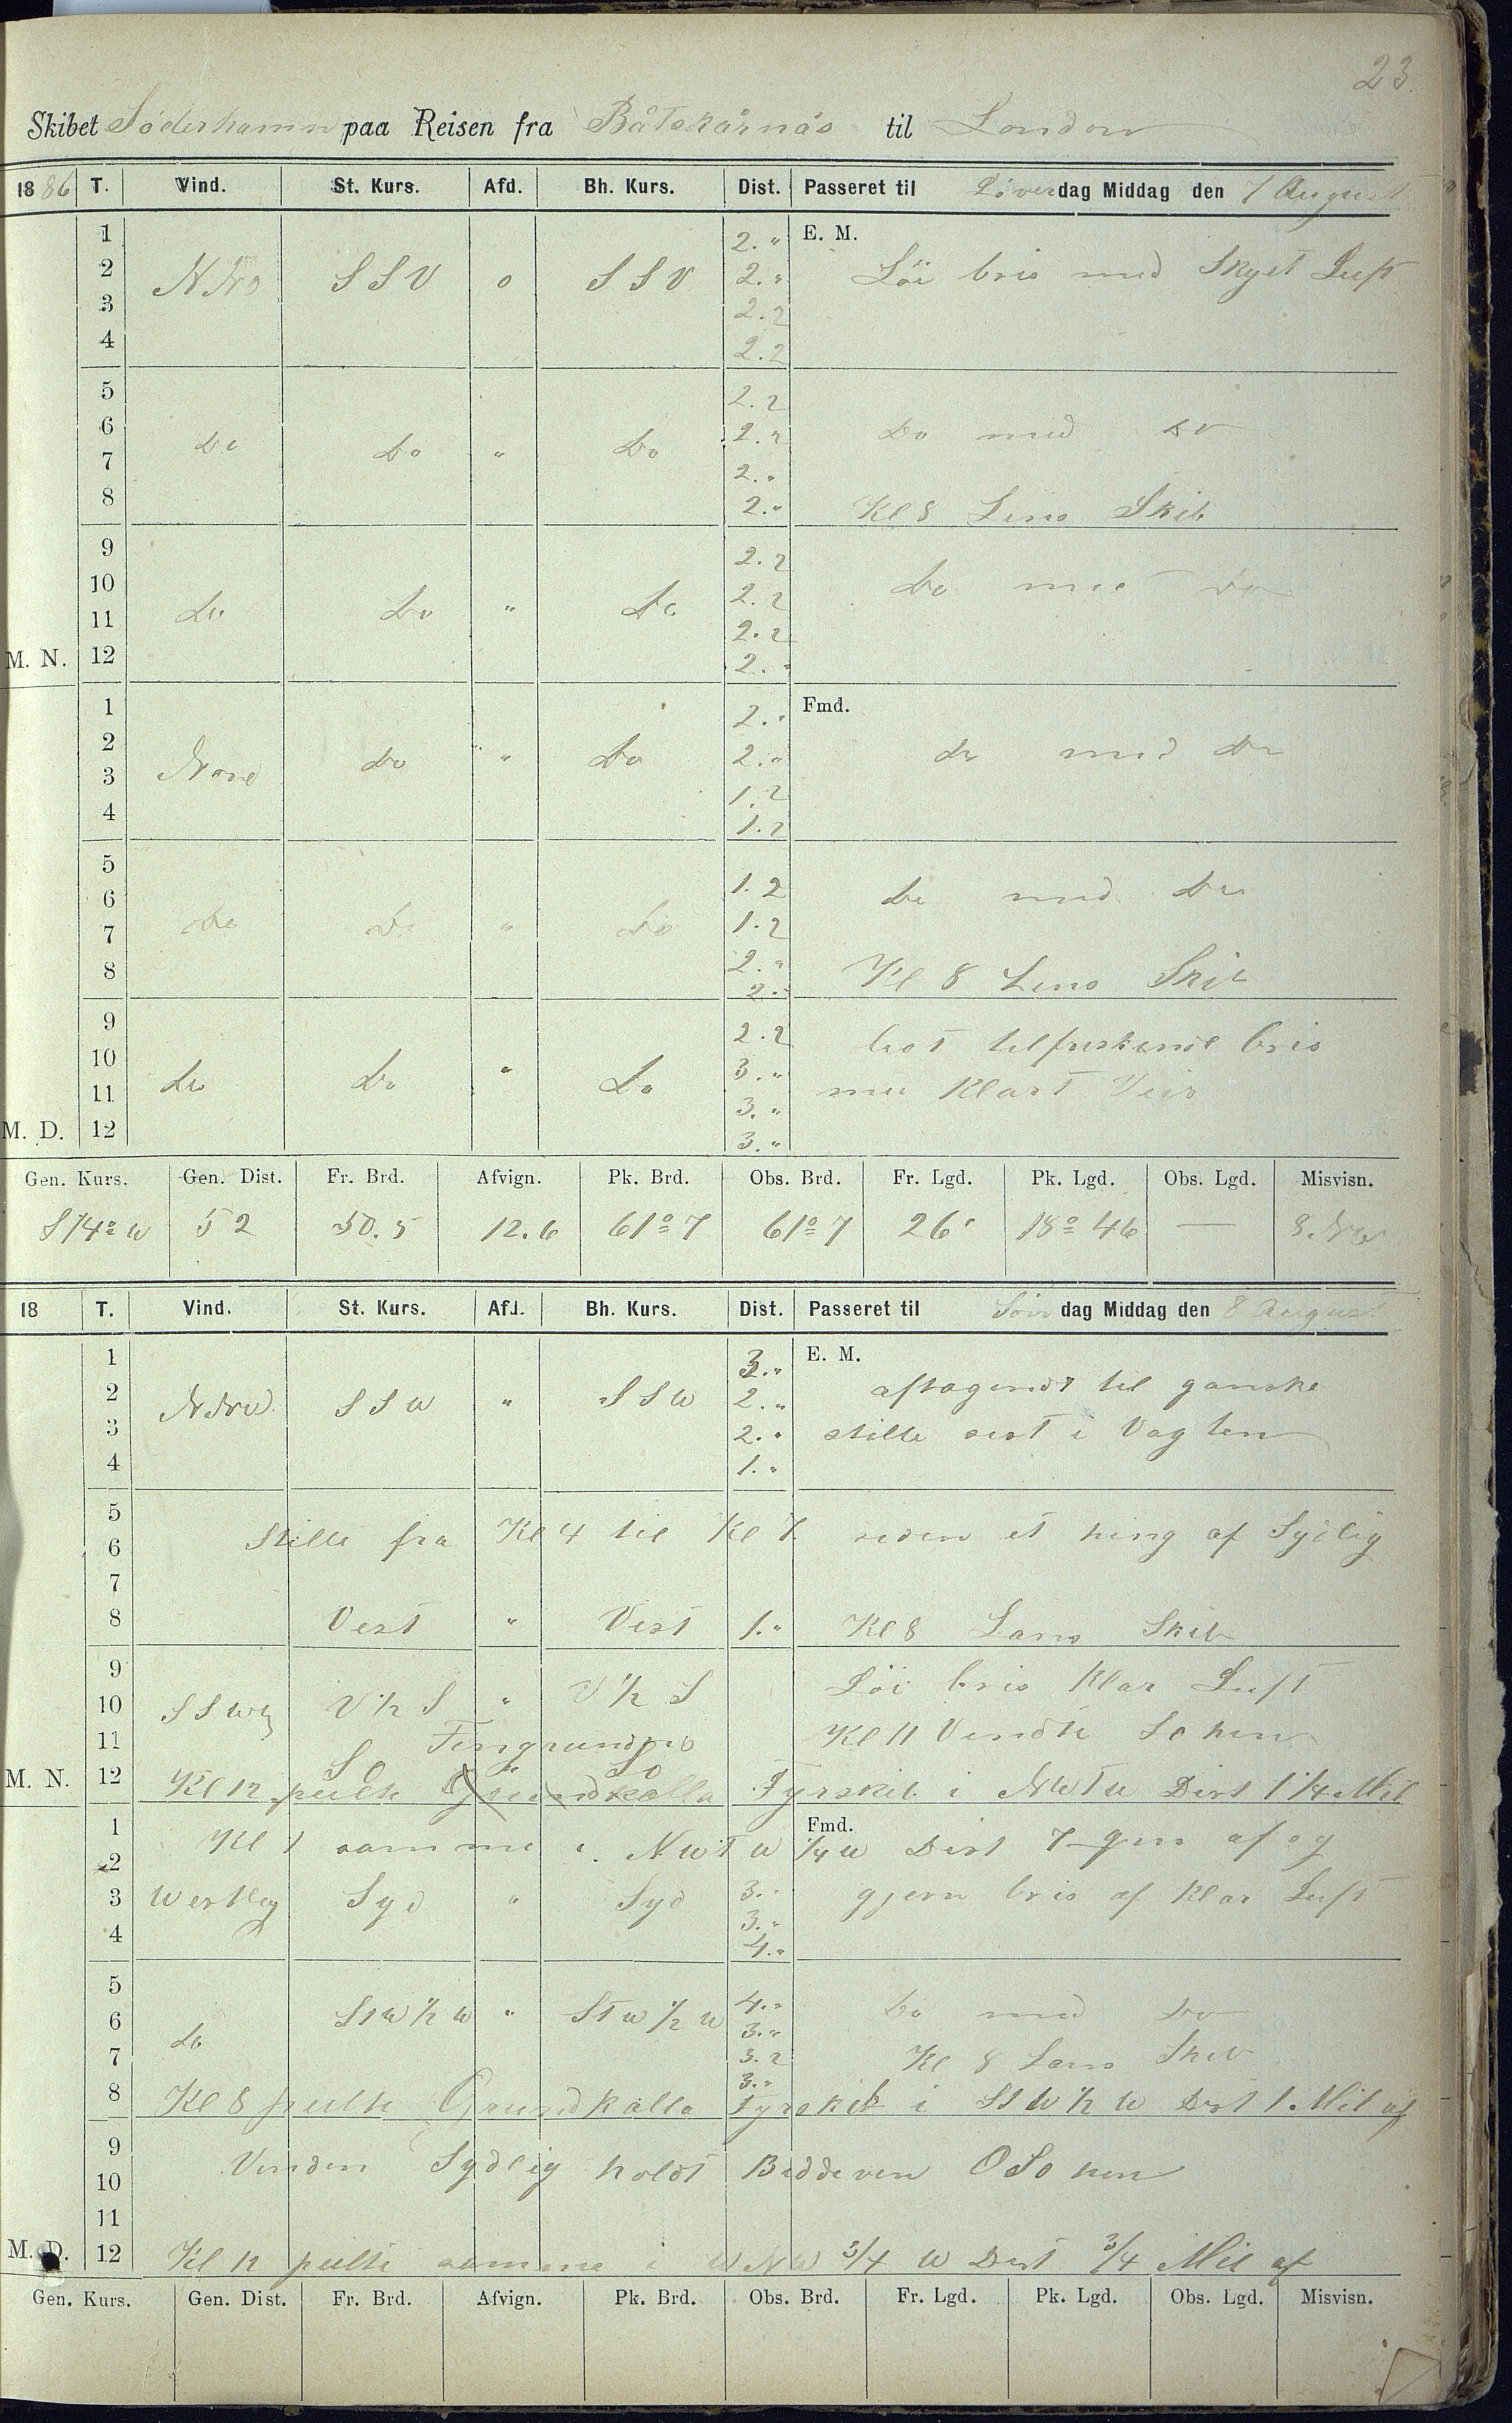 23.
Skibet Söderhamn paa Reisen fra Båtskärnäs til London
1886 T. Vind. St. Kurs. Afd. Bh. Kurs. Dist. Passeret til Löverdag Middag den 7 August
1 2. " E. M.
2 N SSV o SSV 2. " Löi bris med Skyet Luft
3 2.2
4 2.2
5 2.2
6 do do " do 2.2 do med do
7 2. "
8 2. " Kl 8 Lens Skib
9 2.2
10 do do " do 2.2 do med do
11 2.2
M. N. 12 2. "
1 2. " Fmd.
2 Nord do " do 2. " do med do
3 1.2
4 1.2
5 1.2
6 do do " do 1.2 do med do
7 2. "
8 2. " Kl 8 Lens Skib
9 2.2 tilfriskende bris
10 do do " do 3. " med Klart Veir
11 3. "
M. D. 12 3. "
Gen. Kurs. Gen. Dist. Fr. Brd. Afvign. Pk. Brd. Obs. Brd. Fr. Lgd. Pk. Lgd. Obs. Lgd. Misvisn.
S 14° W 52 50.5 12.6 61° 7 61° 7 26' 18° 46 — 8. NW
18 T. Vind. St. Kurs. Afd. Bh. Kurs. Dist. Passeret til Søndag Middag den 8 August
1 3. " E. M.
2 N NW SSW " SSW 2. " aftagende til ganske
3 2. " stille sist i Vagten
4 1. "
5 Stille fra Kl 4 til Kl 7. siden et ning af Sydlig
6
7
8 Vest " Vest 1. " Kl 8 Lens Skib
9 Löi bris Klar Luft
10 SSW V ½ S " V ½ S
11 Fingrundets Kl 11 Vendte SO hen
SO " SO
M. N. 12 Kl 12 peilte Grundkalla Fyrskib i NWTW Dist 1 1/4 Mil
1 Kl 1 samme i NWTW 1/4 W Dist 7 af og Fmd.
2
3 Westlig Syd " Syd 3. " gjevn bris af Klar Luft
3. "
4 4. "
5 4. "
6 do STW ½ W " STW ½ W 3. " do med do
7 3.2 Kl 8 Lens Skib
3. "
8 Kl 8 peilte Grundkalla Fyrskib i STW ½ W Dist 1 Mil af
9 Vinden Sydlig holdt Biddeven OSO hen
10
11
M. D. 12 Kl 12 peilte samme i WNW 3/4 W Dist 3/4 Mil af
Gen. Kurs. Gen. Dist. Fr. Brd. Afvign. Pk. Brd. Obs. Brd. Fr. Lgd. Pk. Lgd. Obs. Lgd. Misvisn.